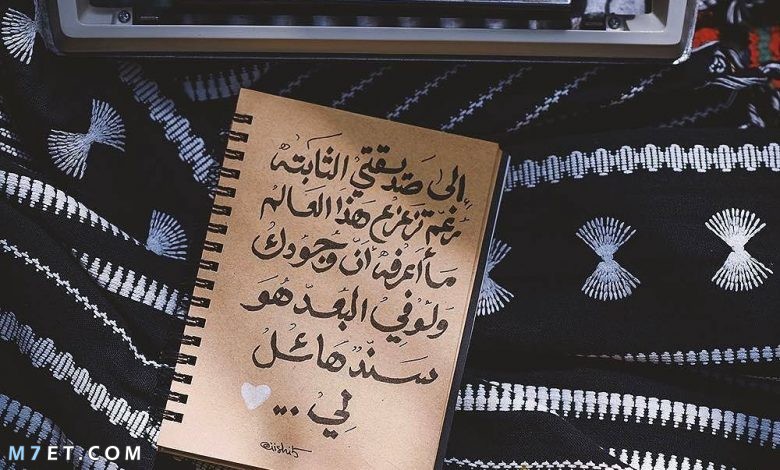 إلى صديقتي الثابته
رغم تزعزع هذا العالم
ما أعرفه أنّ وجودك
ولو في البعد هو
سندٌ هائل
لي ...
@iishi5
M7ET.COM